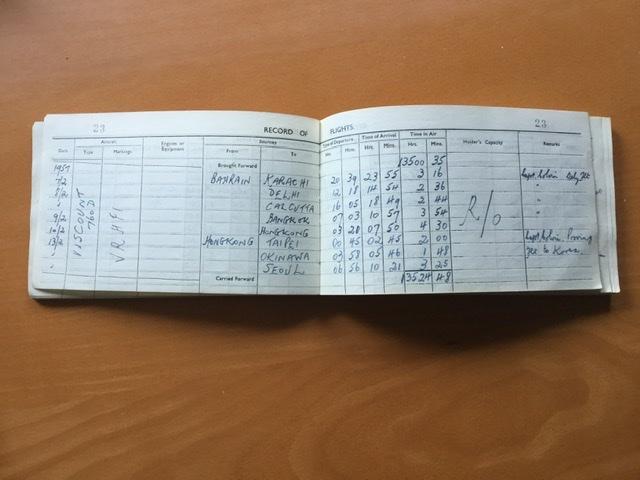 23 23
RECORD OF FLIGHTS
Date Aircraft Engines or Equipment Journey Time of Departure Time of Arrival Time in Air Master's Capacity Remarks
Type Markings From To Hrs. Mins. Hrs. Mins. Hrs. Mins.
1957 Brought Forward 13500 35
7/2 VISCOUNT 760D VRHFI BAHRAIN KARACHI 20 39 23 55 3 16 R/o Capt. Dely Flt
8/2 DELHI 12 18 14 54 2 36 "
" CALCUTTA 16 05 18 49 2 44 "
9/2 BANGKOK 07 03 10 57 3 54 "
10/2 HONGKONG 03 20 07 50 4 30 "
13/2 HONGKONG TAIPEI 00 45 02 45 2 00 Capt. Proving
" OKINAWA 03 58 05 46 1 48 Flt to Korea.
" SEOUL 06 56 10 21 3 25
Carried Forward 13524 48